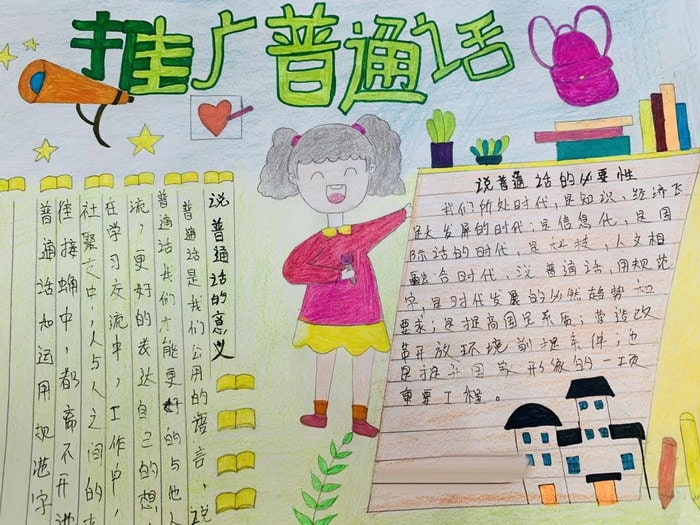 推广普通话
说普通话的意义
普通话是我们公用的语言，说
普通话我们才能更好的与他人
流，更好的表达自己的想
在学习交流中，工作中，
社聚交中，人与人之间的
往接触中，都离不开
普通话和运用规范字
说普通话的必要性
我们所处时代，是知识，经济飞
大发展的时代；是信息代，是国
际话的时代，是科技，人文相
融合时代，说普通话，用规范
字，是时代发展的必然趋势和
要求；是提高国民素质；营造改
革开放环境前提条件；也
是提升国家形像的一项
重要工程。